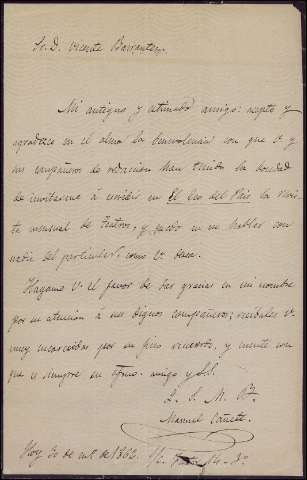 Sr. D. Vicente Barrantes.
Mi antiguo y estimado amigo: acepto y
agradezco en el alma la benevolencia con que V. y
sus compañeros de redaccion han tenido la bondad
de invitarme á escribir en El Eco del Pais la revis-
ta mensual de teatros, y quedo en no hablar con
nadie del particular, como V. desea.
Hágame V. el favor de dar gracias en mi nombre
por su atencion á sus dignos compañeros; recíbalas V.
muy por su y cuente con
que es siempre su afmo. amigo y
Q. B. S. M.
Manuel Cañete
Hoy 30 de 1862.